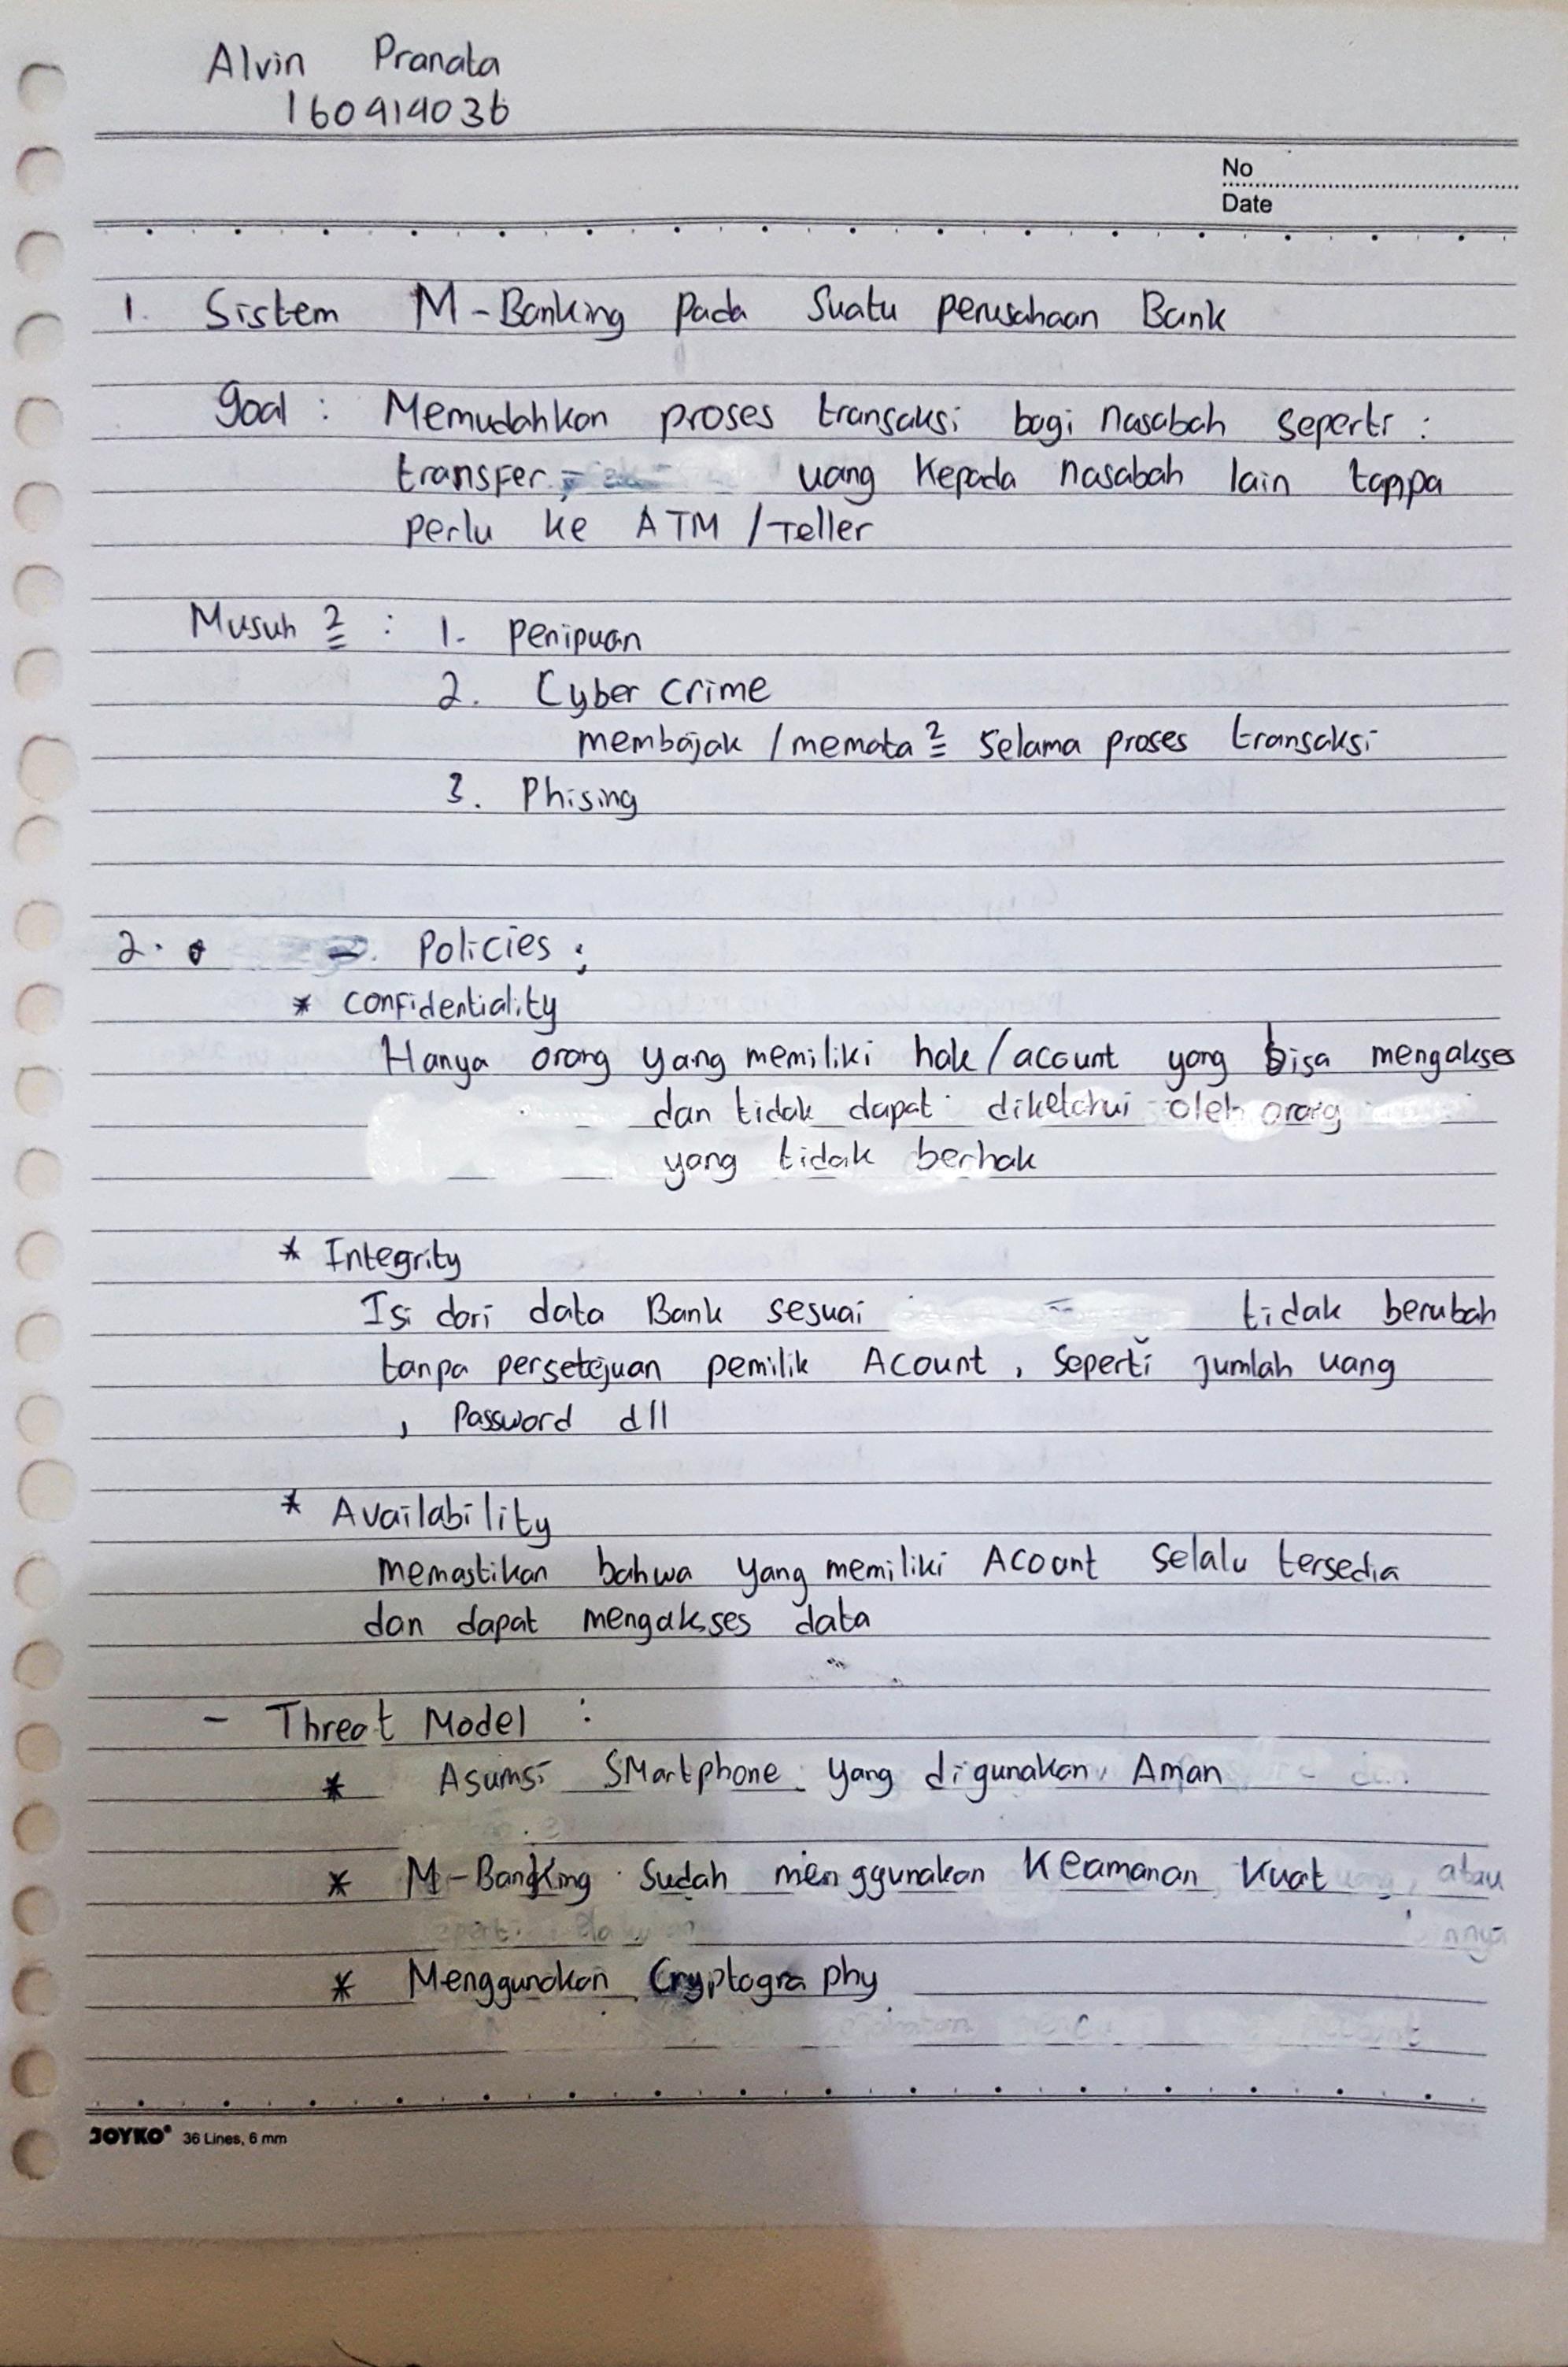 Alvin Pranata
160414036
No
Date
1. Sistem M-Banking Pada Suatu perusahaan Bank
goal : Memudahkan proses transaksi bagi nasabah seperti :
transfer uang kepada nasabah lain tanpa
perlu ke ATM / Teller
Musuh 2 : 1. Penipuan
2. Cyber crime
membajak / memata 2 selama proses transaksi
3. Phising
2. Policies :
* Confidentiality
Hanya orang yang memiliki hak / acount yang bisa mengakses
dan tidak dapat diketahui oleh orang
yang tidak berhak
* Integrity
Isi dari data Bank sesuai tidak berubah
tanpa persetejuan pemilik Acount , Seperti jumlah uang
, Password dll
* Availability
memastikan bahwa yang memiliki Acount selalu tersedia
dan dapat mengakses data
- Threat Model :
* Asumsi Smartphone yang digunakan Aman
* M-Banking Sudah menggunakan Keamanan Kuat
* Menggunakan Cryptography
JOYKO® 36 Lines, 6 mm